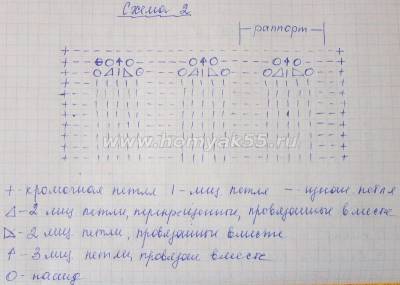 Схема 2
раппорт
www.homyak55.ru
+ - кромочная петля I - лиц петля — - изнан петля
⊿ - 2 лиц петли, перекрещенные, провязанные вместе
- 2 лиц петли, провязанные вместе
↑ - 3 лиц петли, провязан вместе
О - накид